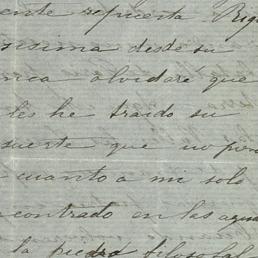 ente repuesta Rig
nisima desde su
nca olvidare que
les he traido su
suerte que no pien
cuanto a mi solo
contrado en las agua
la piedra filosofal